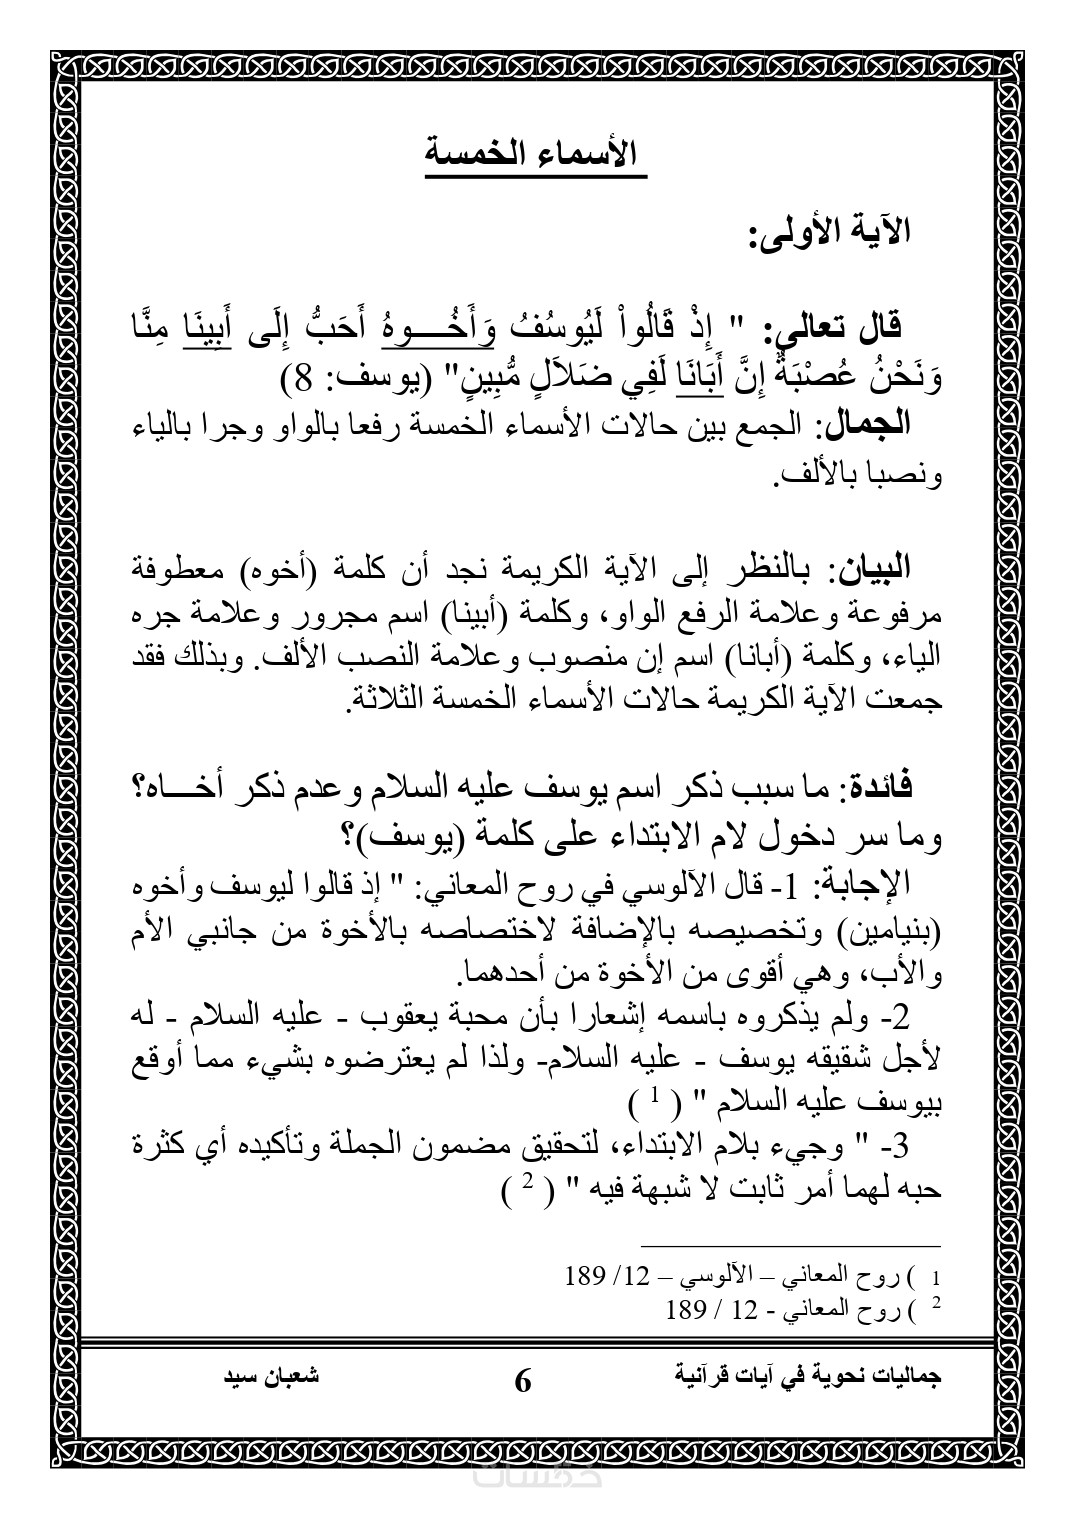 الأسماء الخمسة
الآية الأولى:
قال تعالى: " إِذْ قَالُواْ لَيُوسُفُ وَأَخُـــوهُ أَحَبُّ إِلَى أَبِينَا مِنَّا
وَنَحْنُ عُصْبَةٌ إِنَّ أَبَانَا لَفِي ضَلاَلٍ مُّبِينٍ" (يوسف: 8)
الجمال: الجمع بين حالات الأسماء الخمسة رفعا بالواو وجرا بالياء
ونصبا بالألف.
البيان: بالنظر إلى الآية الكريمة نجد أن كلمة (أخوه) معطوفة
مرفوعة وعلامة الرفع الواو، وكلمة (أبينا) اسم مجرور وعلامة جره
الياء، وكلمة (أبانا) اسم إن منصوب وعلامة النصب الألف. وبذلك فقد
جمعت الآية الكريمة حالات الأسماء الخمسة الثلاثة.
فائدة: ما سبب ذكر اسم يوسف عليه السلام وعدم ذكر أخـــاه؟
وما سر دخول لام الابتداء على كلمة (يوسف)؟
الإجابة: 1- قال الآلوسي في روح المعاني: " إذ قالوا ليوسف وأخوه
(بنيامين) وتخصيصه بالإضافة لاختصاصه بالأخوة من جانبي الأم
والأب، وهي أقوى من الأخوة من أحدهما.
2- ولم يذكروه باسمه إشعارا بأن محبة يعقوب - عليه السلام - له
لأجل شقيقه يوسف - عليه السلام- ولذا لم يعترضوه بشيء مما أوقع
بيوسف عليه السلام " ( 1 )
3- " وجيء بلام الابتداء، لتحقيق مضمون الجملة وتأكيده أي كثرة
حبه لهما أمر ثابت لا شبهة فيه " ( 2 )
1 ) روح المعاني – الآلوسي – 12/ 189
2 ) روح المعاني - 12 / 189
جماليات نحوية في آيات قرآنية 6 شعبان سيد
خمسات